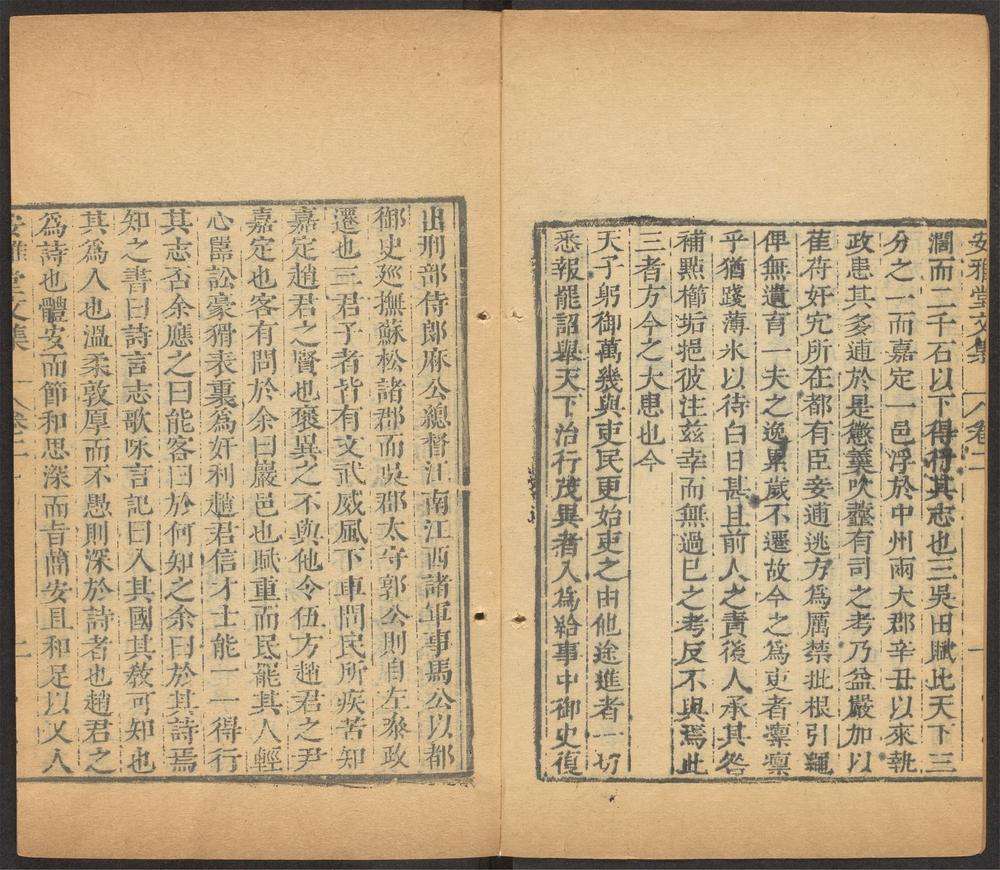 安雅堂文集 卷二 一
濶而二千石以下得行其志也三吳田賦比天下三
分之一而嘉定一邑浮於中州兩大郡辛丑以來執
政患其多逋於是懲羹吹虀有司之考乃益嚴加以
萑苻奸宄所在都有臣妾逋逃方為厲禁批根引繩
俾無遺育一夫之逸累歲不遷故今之為吏者凛凛
乎猶踐薄氷以待白日甚且前人之責後人承其咎
補㸃櫛垢挹彼注兹幸而無過已之考反不與焉此
三者方今之大患也今
天子躬御萬幾與吏民更始吏之由他途進者一切
悉報罷詔舉天下治行茂異者入為給事中御史復
出刑部侍郎麻公總督江南江西諸軍事馬公以都
御史廵撫蘇松諸郡而吳郡太守郭公則自左叅政
遷也三君子者皆有文武威風下車問民所疾苦知
嘉定趙君之賢也褒異之不與他令伍方趙君之尹
嘉定也客有問於余曰嚴邑也賦重而民罷其人輕
心嚚訟豪猾表裏為奸利趙君信才士能一一得行
其志否余應之曰能客曰於何知之余曰於其詩焉
知之書曰詩言志歌咏言記曰入其國其敎可知也
其為人也溫柔敦厚而不愚則深於詩者也趙君之
為詩也體安而節和思深而旨蕳安且和足以乂人
安雅堂文集 卷二 二